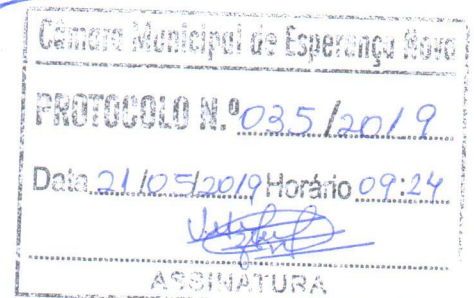 Câmara Municipal de Esperança Nova
PROTOCOLO N.º 035/2019
Data 21/05/2019 Horário 09:24
ASSINATURA